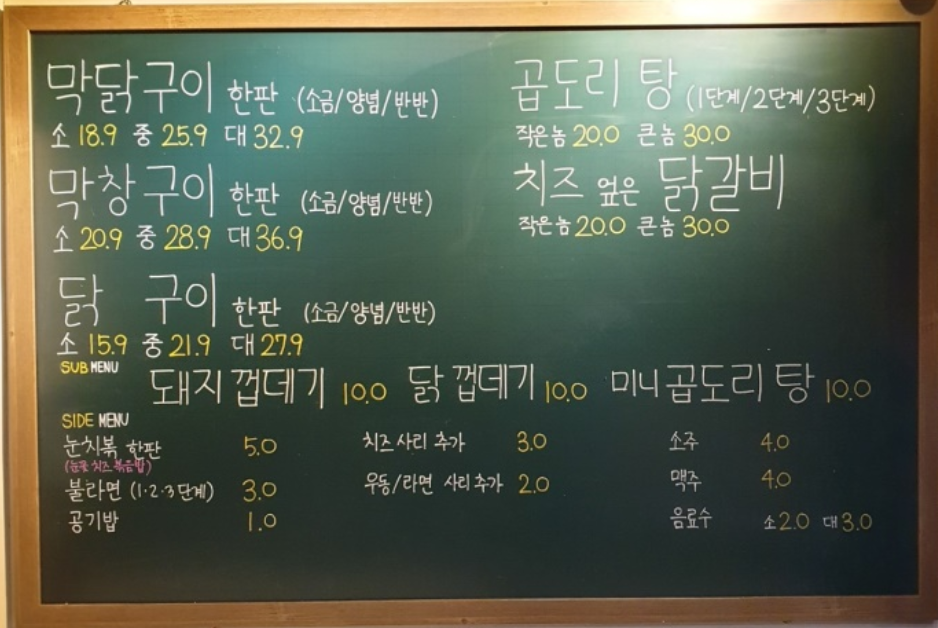 막닭구이 한판 (소금/양념/반반)
소 18.9 중 25.9 대 32.9
막창구이 한판 (소금/양념/반반)
소 20.9 중 28.9 대 36.9
닭 구이 한판 (소금/양념/반반)
소 15.9 중 21.9 대 27.9
곱도리탕 (1단계/2단계/3단계)
작은놈 20.0 큰놈 30.0
치즈 엎은 닭갈비
작은놈 20.0 큰놈 30.0
SUB MENU
돼지껍데기 10.0 닭껍데기 10.0 미니곱도리탕 10.0
SIDE MENU
눈치볶 한판 5.0
(눈꽃 치즈 볶음밥)
불라면 (1·2·3단계) 3.0
공기밥 1.0
치즈 사리 추가 3.0
우동/라면 사리 추가 2.0
소주 4.0
맥주 4.0
음료수 소 2.0 대 3.0